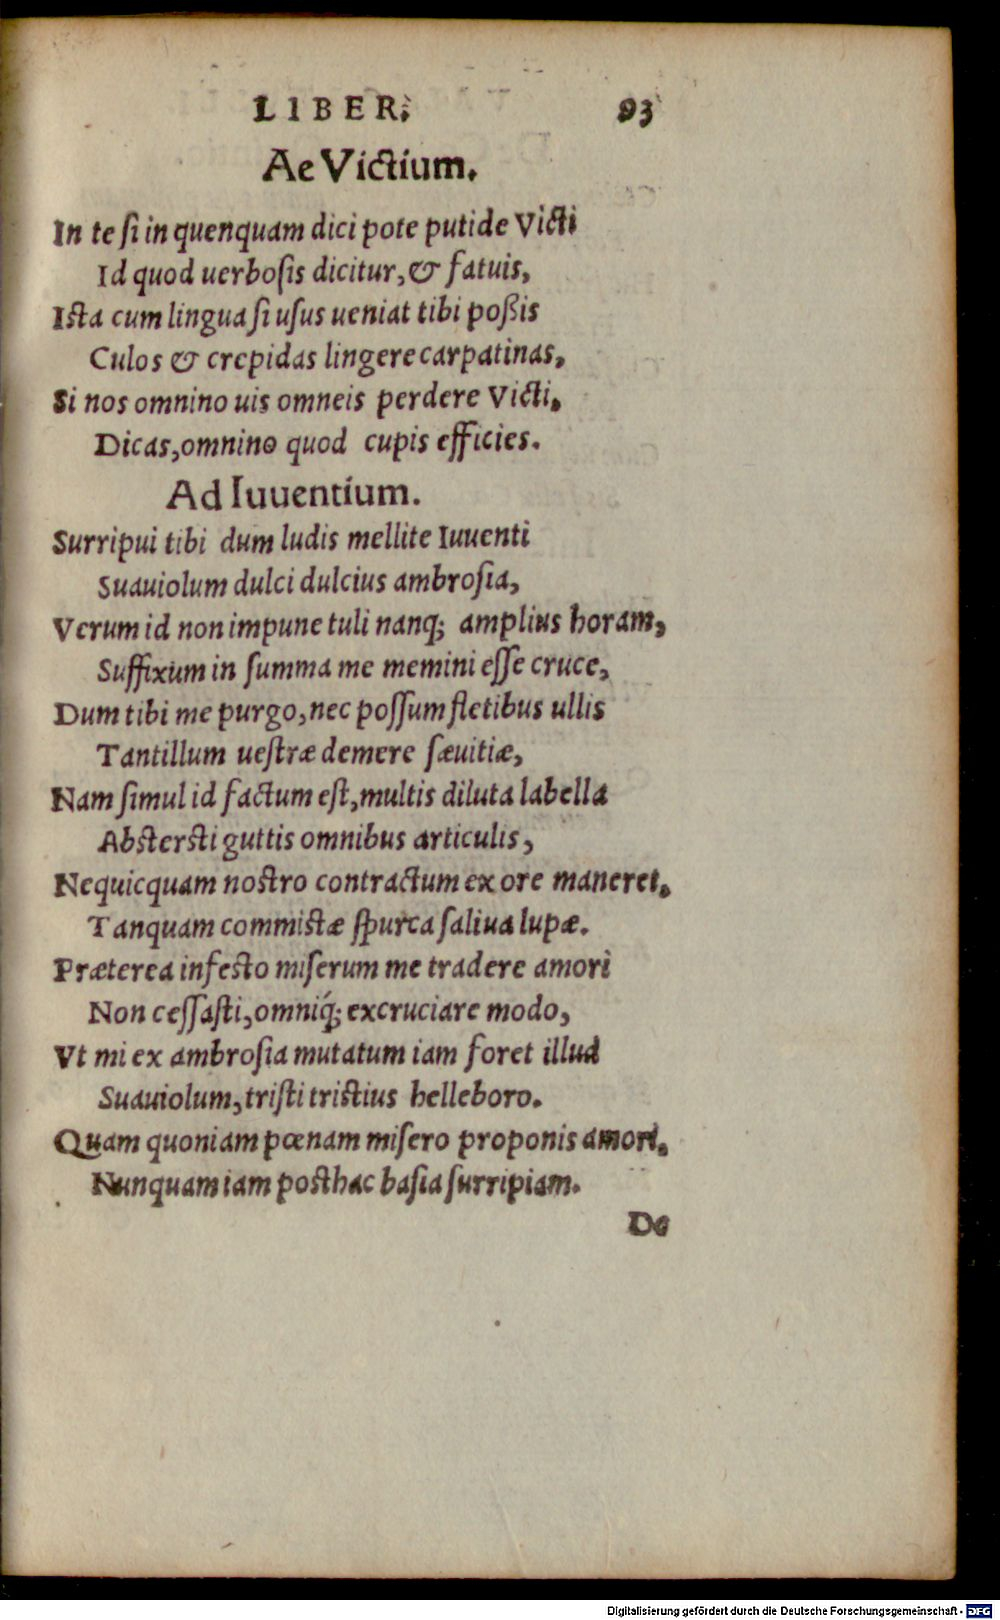 LIBER. 93
Ae Victium.
In te ſi in quenquam dici pote putide Victi
Id quod uerboſis dicitur, & fatuis,
Iſta cum lingua ſi uſus ueniat tibi poßis
Culos & crepidas lingere carpatinas,
Si nos omnino uis omneis perdere Victi,
Dicas, omnino quod cupis efficies.
Ad Iuuentium.
Surripui tibi dum ludis mellite Iuuenti
Suauiolum dulci dulcius ambroſia,
Verum id non impune tuli nanq; amplius horam,
Suffixum in ſumma me memini eſſe cruce,
Dum tibi me purgo, nec poſſum fletibus ullis
Tantillum ueſtræ demere ſæuitiæ,
Nam ſimul id factum eſt, multis diluta labella
Abſterſti guttis omnibus articulis,
Nequicquam noſtro contractum ex ore maneret.
Tanquam commictæ ſpurca ſaliua lupæ.
Præterea infeſto miſerum me tradere amori
Non ceſſaſti, omniq́; excruciare modo,
Vt mi ex ambroſia mutatum iam foret illud
Suauiolum, triſti triſtius helleboro.
Quam quoniam pœnam miſero proponis amori.
Nunquam iam poſthac baſia ſurripiam.
De
Digitalisierung gefördert durch die Deutsche Forschungsgemeinschaft - DFG